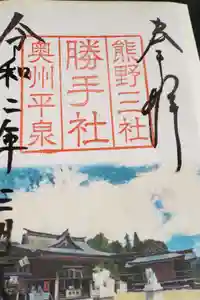 奉拝
熊野三社
勝手社
奥州平泉
令和二年三月